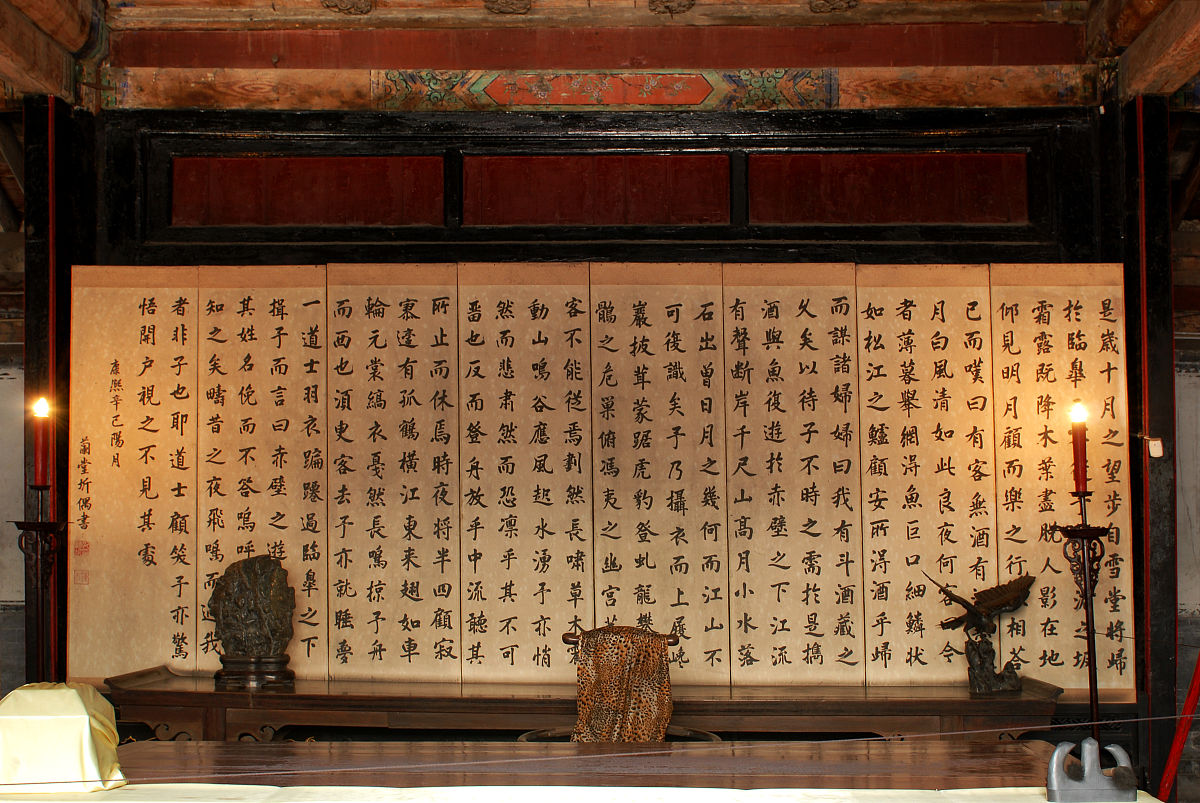 昰歲十月之望步自雪堂將歸
於臨皐從泥之坂
霜露既降木葉盡脫人影在地
仰見明月顧而樂之行相答
已而嘆曰有客無酒有
月白風清如此良夜何客今
者薄暮舉網得魚巨口細鱗狀
如松江之鱸顧安所得酒乎歸
而謀諸婦婦曰我有斗酒藏之
久矣以待子不時之需於昰攜
酒與魚復遊於赤壁之下江流
有聲斷岸千尺山高月小水落
石出曾日月之幾何而江山不
可復識矣予乃攝衣而上履巉
巖披茸蒙踞虎豹登虬龍攀
鶻之危巢俯馮夷之幽宮蓋
客不能從焉劃然長嘯草木震
動山鳴谷應風起水湧予亦悄
然而悲肅然而恐凜乎其不可
畱也反而登舟放乎中流聽其
所止而休焉時夜將半四顧寂
寥適有孤鶴橫江東来翅如車
輪元裳縞衣戛然長鳴掠予舟
而西也須臾客去予亦就睡夢
一道士羽衣蹁躚過臨皐之下
揖予而言曰赤壁之遊
其姓名俛而不答嗚呼
知之矣疇昔之夜飛鳴而過我
者非子也耶道士顧笑予亦驚
悟開户視之不見其處
康熙辛巳陽月
蘭堂圻偶書